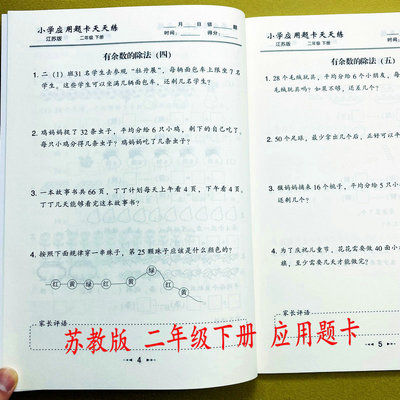 小学应用题卡天天练
江苏版 二年级 下册
月 日 错 题
时间: 得分:
有余数的除法(四)
1. 二(1)班31名学生去参观“牡丹展”,每辆面包车上限坐7名
学生,这些学生可以坐满几辆面包车,还剩几名学生?
2. 鸡妈妈捉了32条虫子,平均分给6只小鸡,剩下的自己吃了,
每只小鸡分得几条虫子?鸡妈妈吃了几条虫子?
3. 一本故事书共66页,丁丁计划每天上午看4页,下午看4页,
丁丁几天能够看完这本故事书?
4. 按照下面规律穿一串珠子,第25颗珠子应该是什么颜色的?
红 黄 绿 红 黄 绿 红 黄
家长评语:
4
小学应用题卡天天练
江苏版 二年级 下册
有余数的除法(五)
1. 28个毛绒玩具,平均分给6个小朋友,每
毛绒玩具吗?如果不够,还差几个?
2. 50个足球,最少拿出几个后,正好可以平
3. 猴妈妈摘来16个桃子,平均分给5只小
还剩几个?
4. 为了庆祝儿童节,花花需要做40面小
旗,至少需要几天才能做完?
家长评语:
5
苏教版 二年级下册 应用题卡